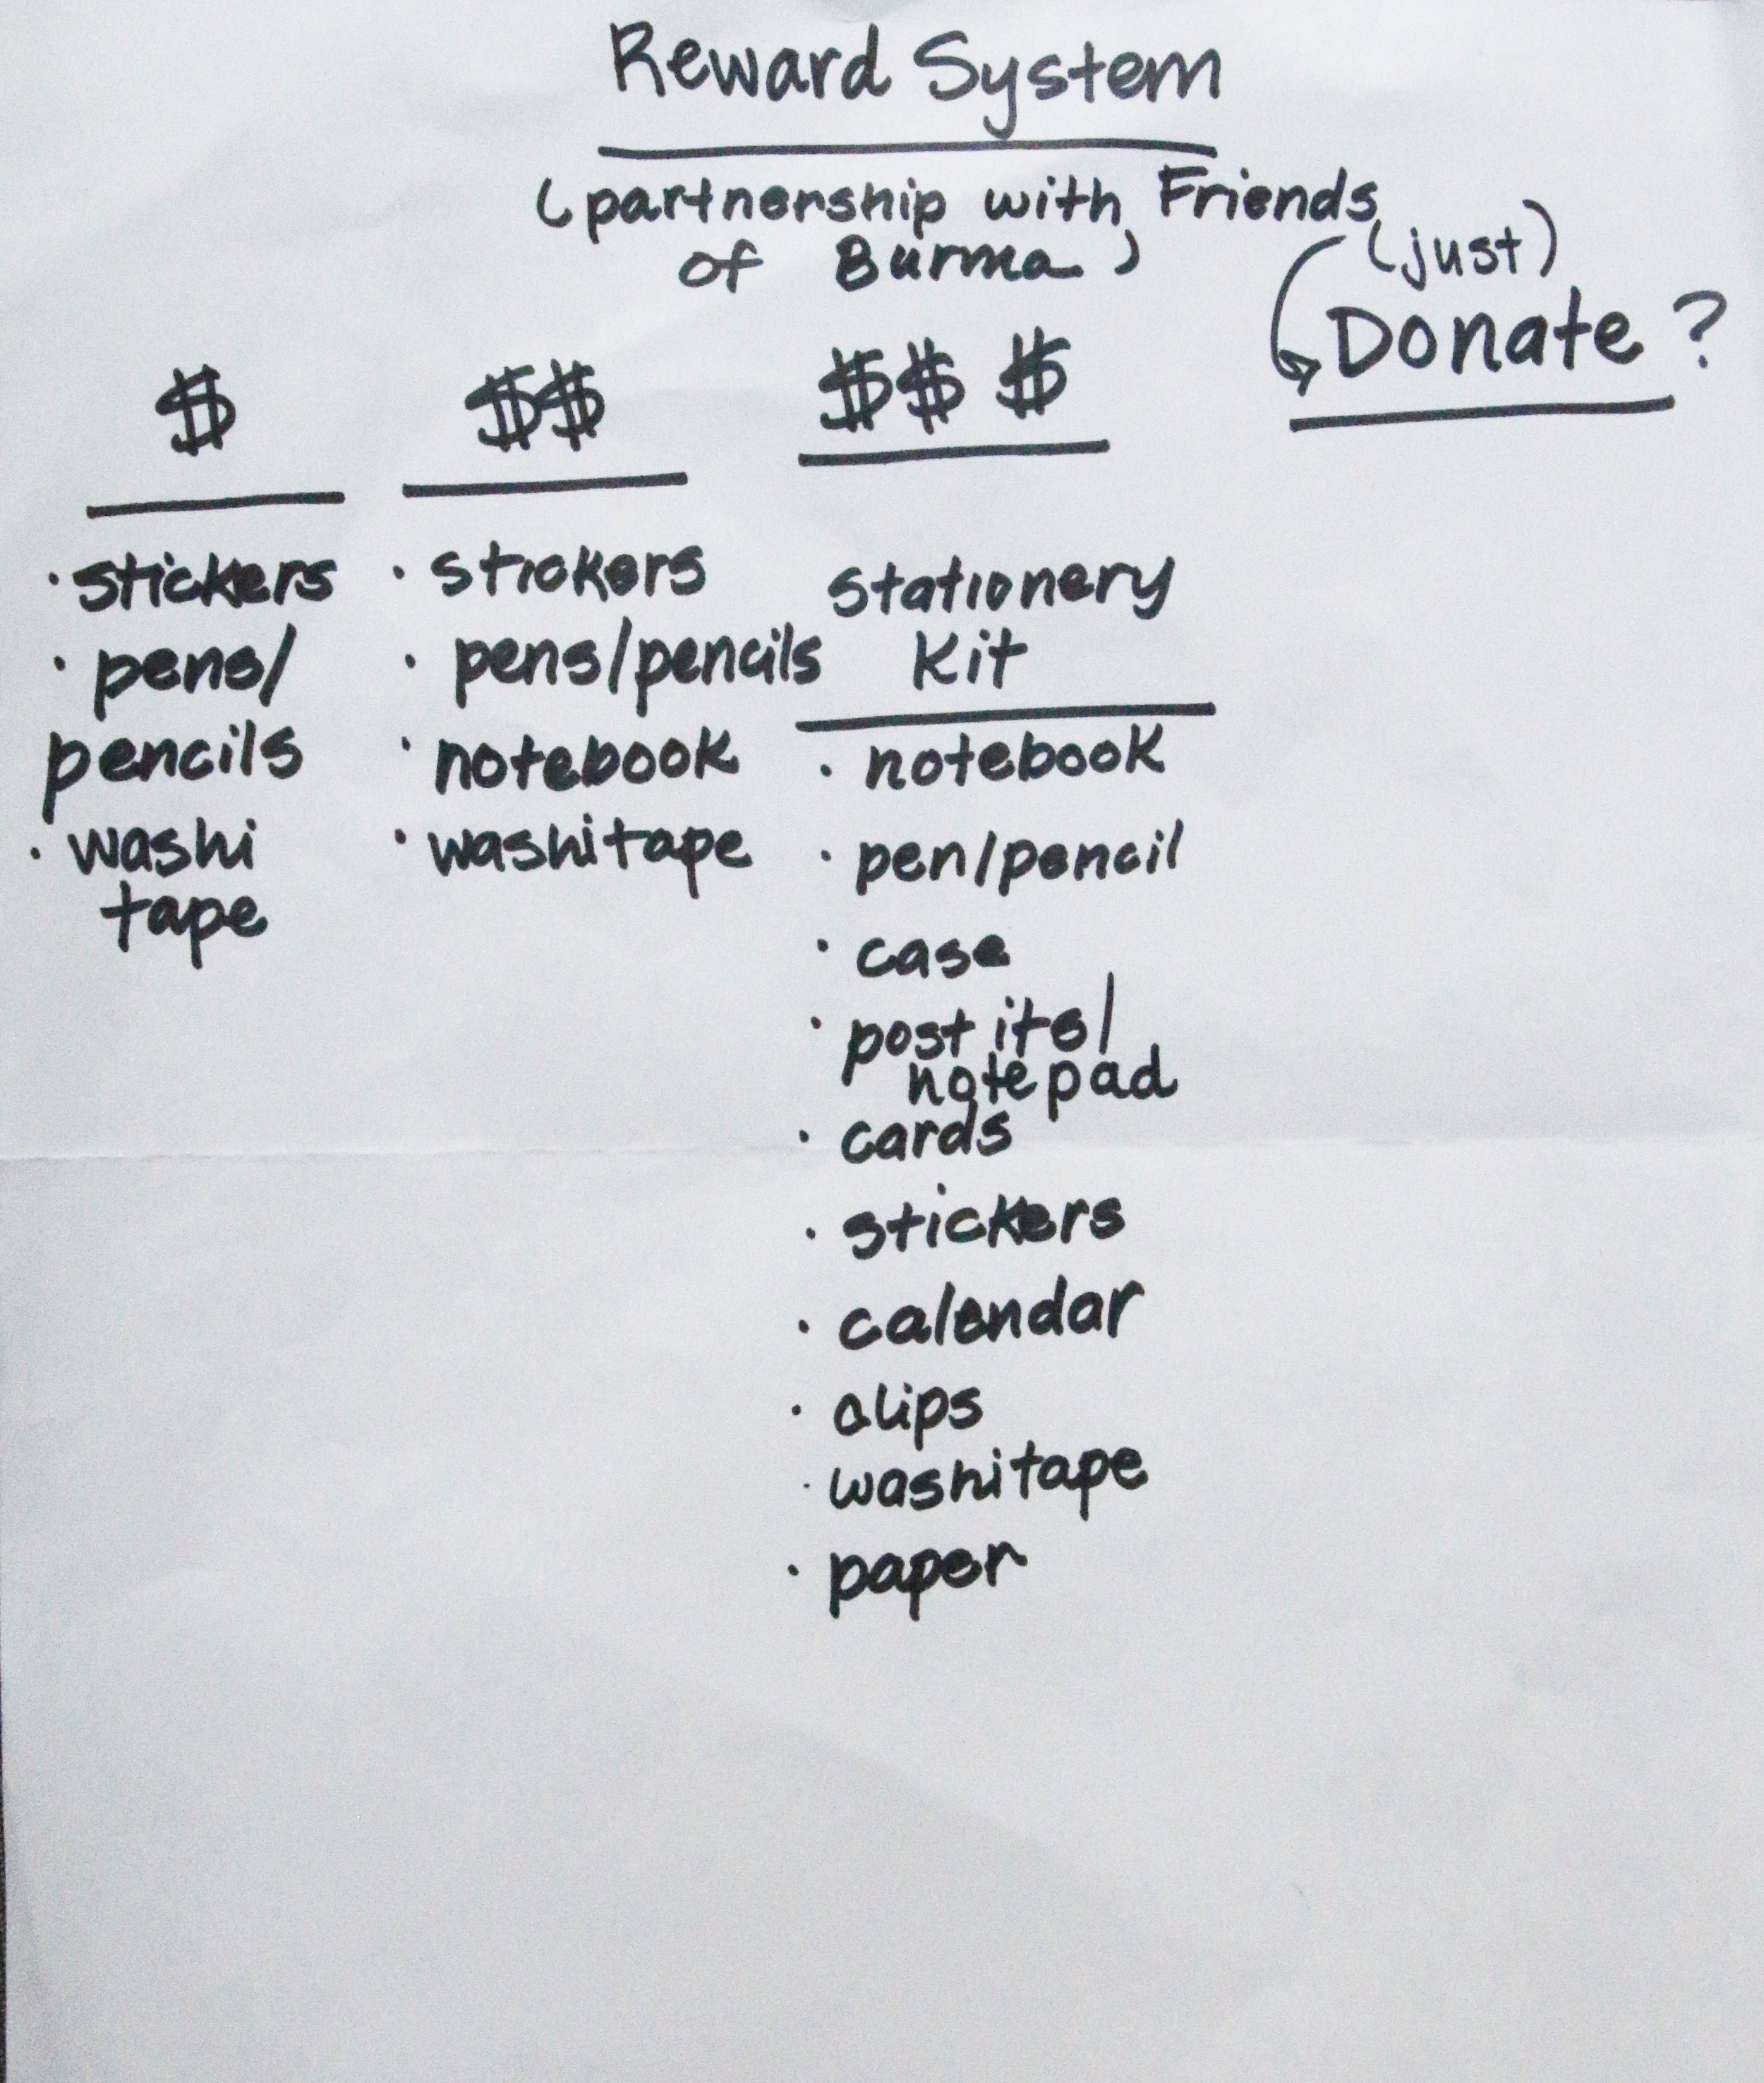 Reward System
(partnership with Friends
of Burma)
(just)
Donate?
$
· stickers
· pens/
pencils
· washi
tape
$$
· stickers
· pens/pencils
· notebook
· washi tape
$$$
stationery
Kit
· notebook
· pen/pencil
· case
· post its/
notepad
· cards
· stickers
· calendar
· clips
· washi tape
· paper